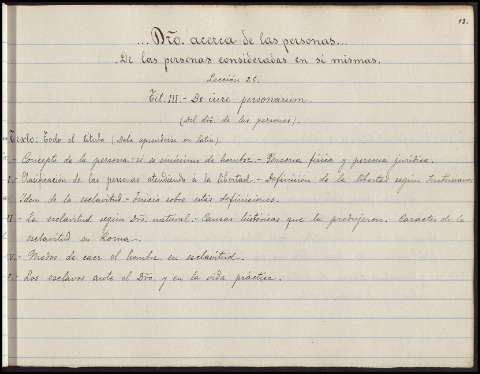 13.
... Dro. acerca de las personas...
De las personas consideradas en sí mismas.
Lección 20.
Tit. III.- De iure personarum.
(Del dro. de las personas).
Texto: Todo el título (Debe aprenderse en latín).
- Concepto de la persona: si es sinónimo de hombre.- Persona física y persona jurídica.
- Clasificación de las personas atendiendo á la libertad.- Definición de la libertad según Justiniano.
Idem de la esclavitud.- Juicio sobre estas definiciones.
- La esclavitud según Dro. natural.- Causas históricas que la produjeron. Carácter de la
esclavitud en Roma.
V.- Modos de caer el hombre en esclavitud.
- Los esclavos ante el Dro. y en la vida práctica.